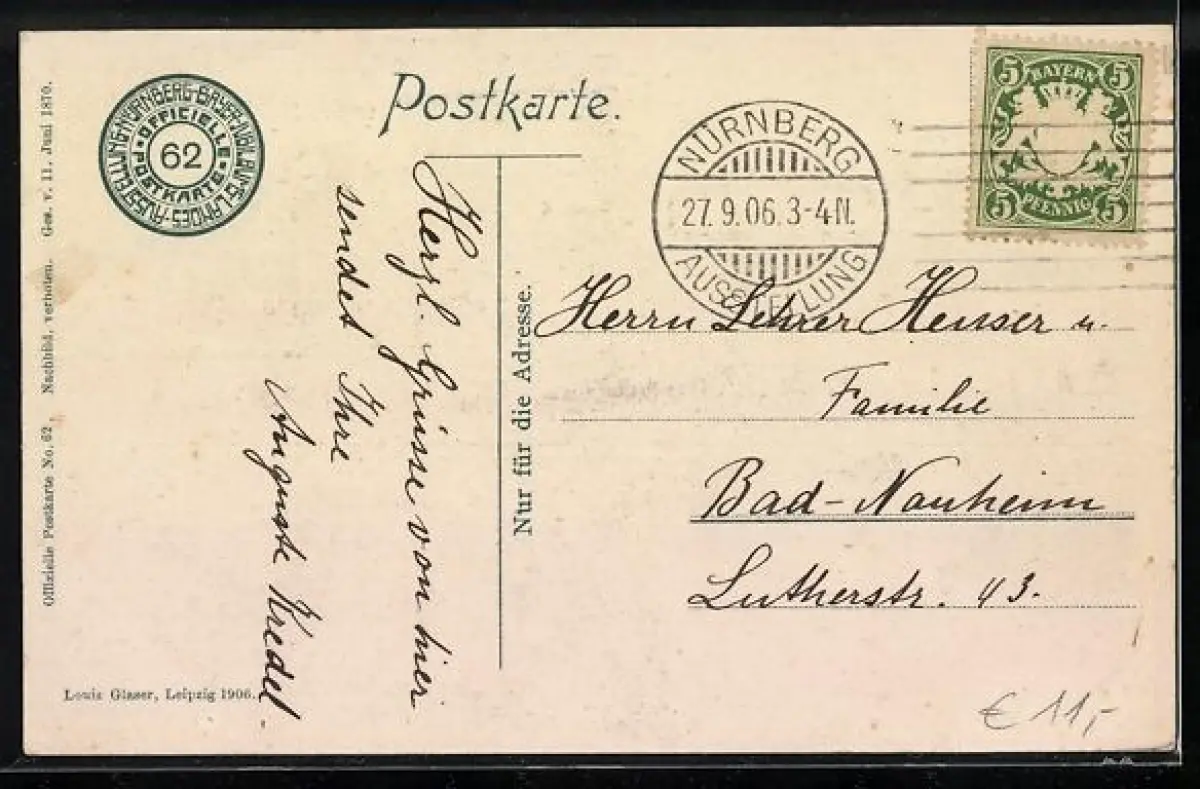 Postkarte.
NÜRNBERG-BAYER-JUBILÄUMS-LANDES-AUSSTELLUNG
OFFICIELLE
62
POSTKARTE
Offizielle Postkarte No. 62 Nachbild. verboten. Ges. v. 11. Juni 1870.
Louis Glaser, Leipzig 1906.
Herzl. Grüsse von hier
sendet Ihre
Auguste Kredel.
Nur für die Adresse.
NÜRNBERG
27.9.06.3-4N.
AUSSTELLUNG
5 BAYERN 5
5 PFENNIG 5
Herrn Lehrer Heuser u.
Familie
Bad-Nauheim
Lutherstr. 43.
€ 11,-